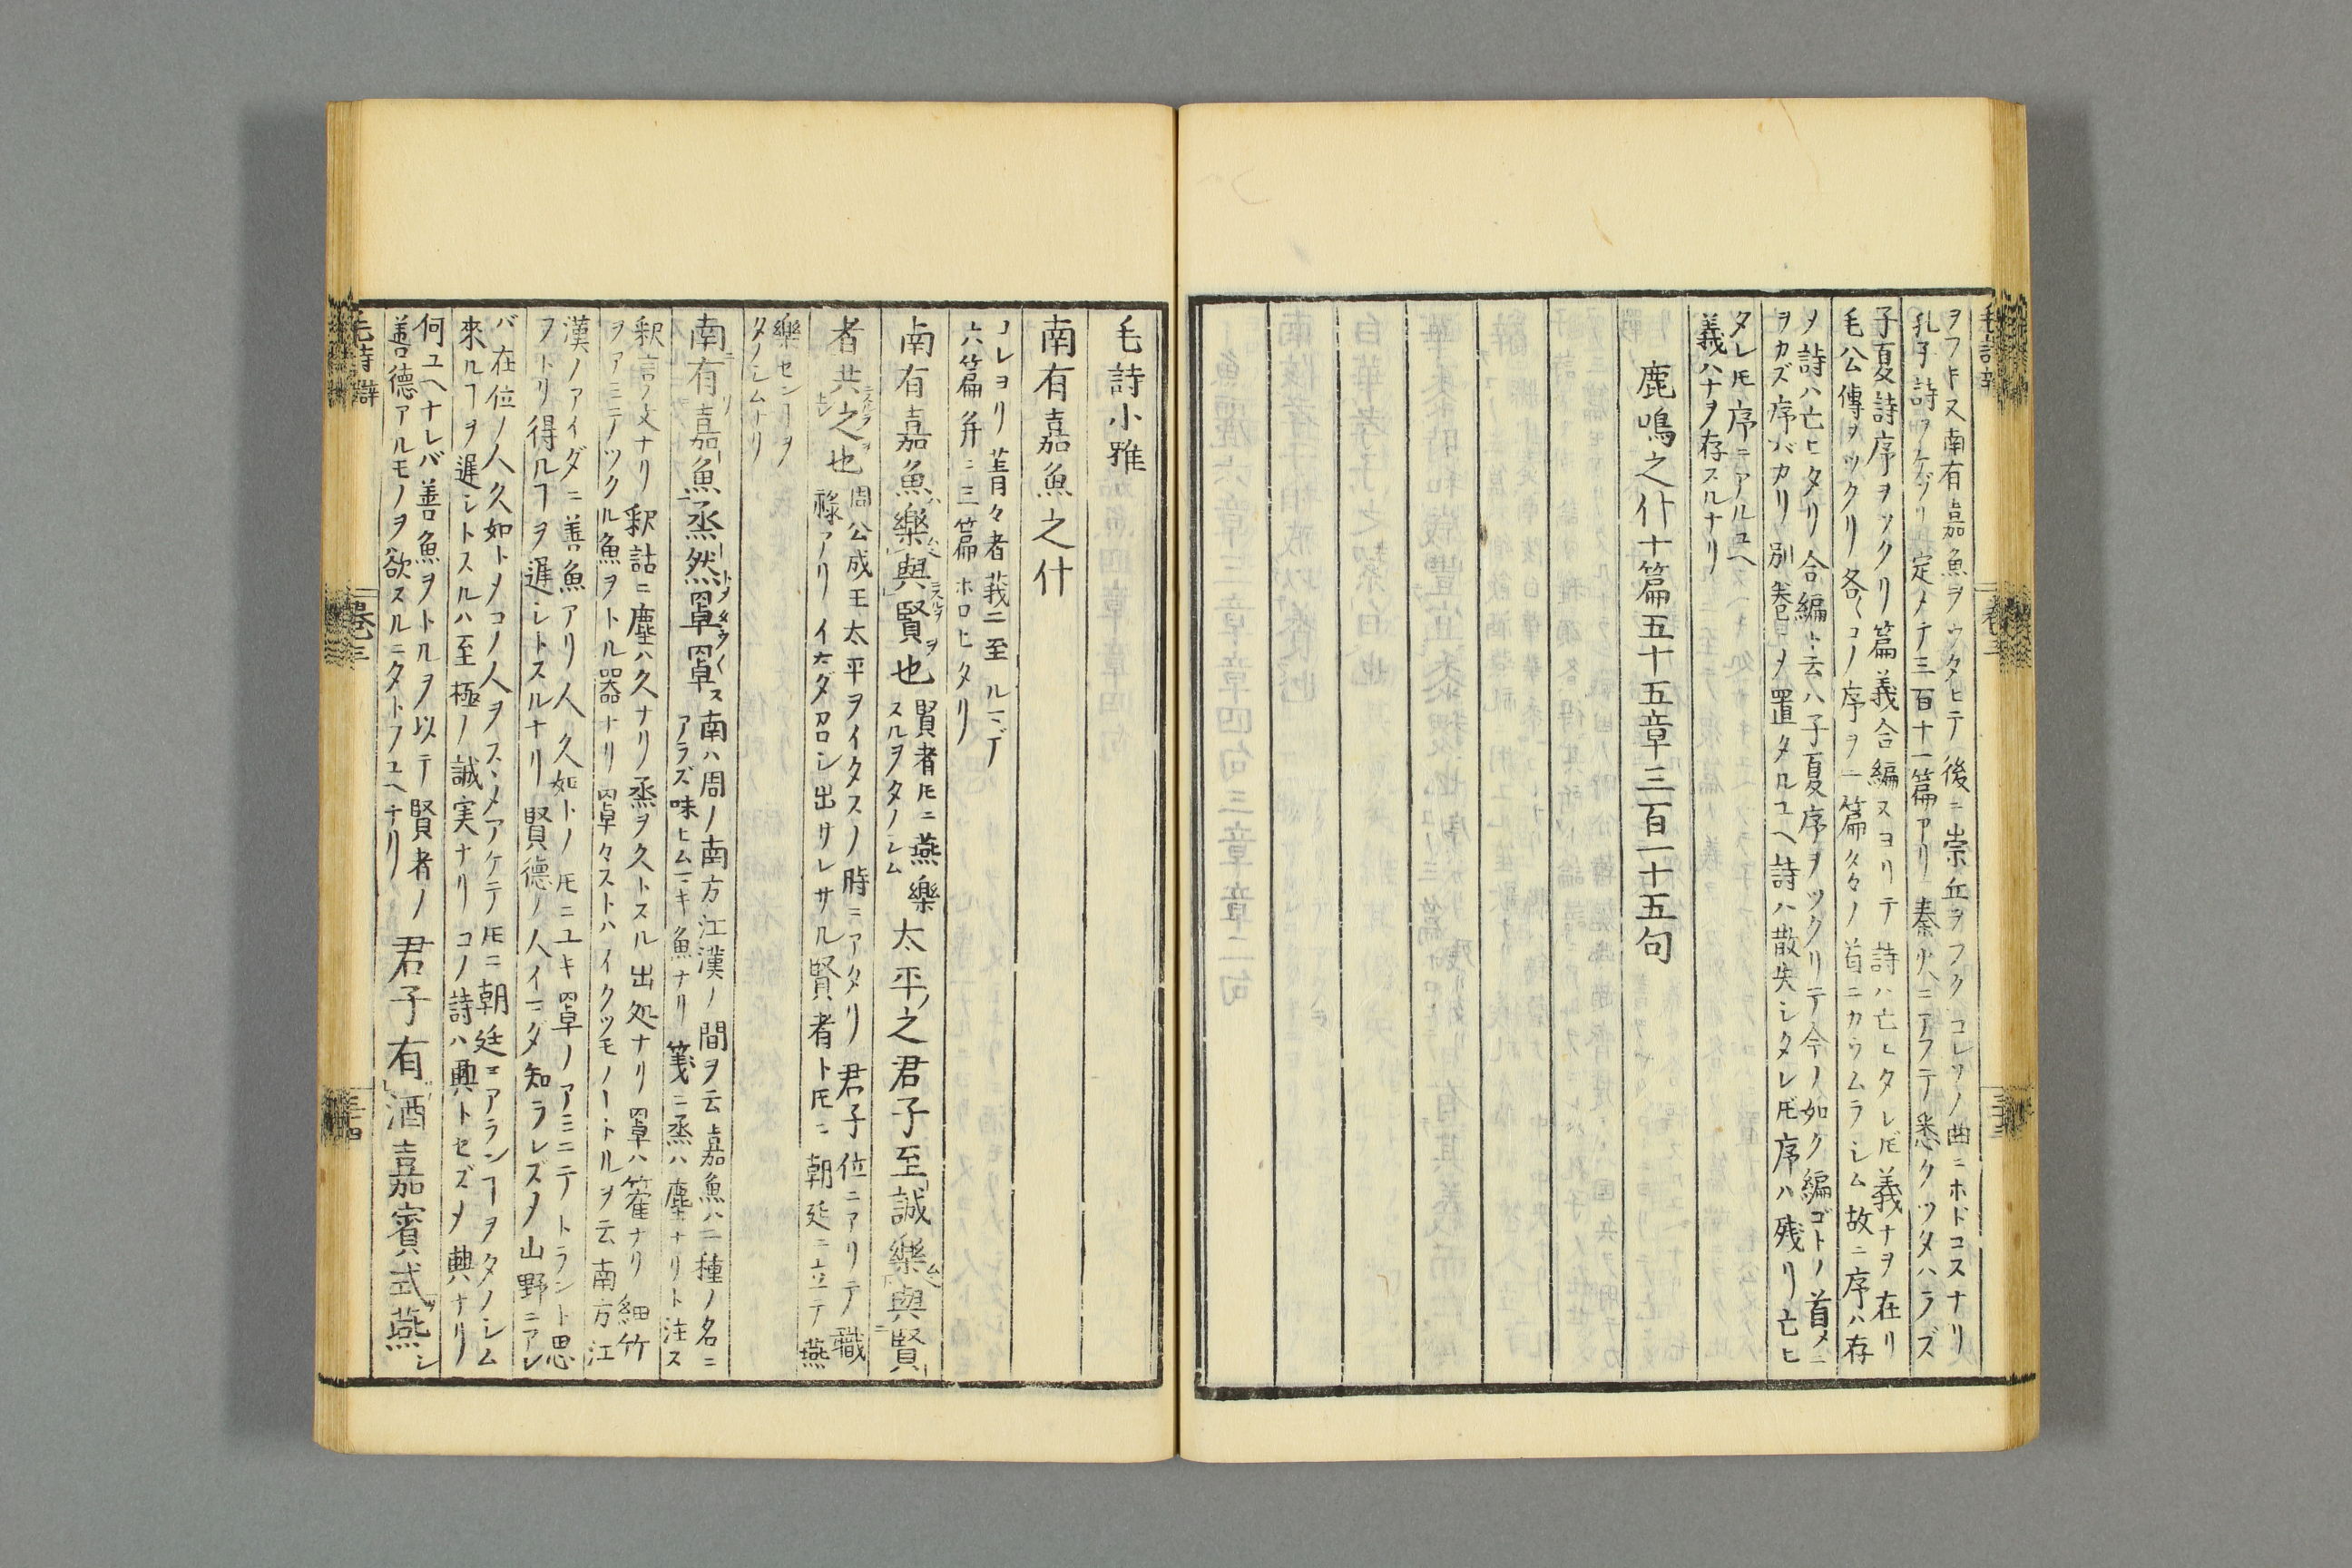 ヲフキ又南有嘉魚ヲウタヒテ後ニ崇丘ヲフクコレソノ曲ニホドコスナリ
孔子詩ヲケヅリ定メテ三百十一篇アリ秦火ニアフテ悉クツタハラズ
子夏詩序ヲツクリ篇義合編スヨリテ詩ハ亡ヒタレ𪜈義ナヲ在リ
毛公傳ヲツクリ各〻コノ序ヲ一篇々々ノ首ニカウムラシム故ニ序ハ存
〆詩ハ亡ヒタリ合編ト云ハ子夏序ヲツクリテ今ノ如ク編ゴトノ首メニ
ヲカズ序バカリ別巻ニ〆置タルユヘ詩ハ散失シタレ𪜈序ハ残リ亡ヒ
タレ𪜈序ニアルユヘ
義ハナヲ存スルナリ
鹿鳴之什十篇五十五章三百一十五句
毛詩小雅
南有嘉魚之什
コレヨリ菁々者莪ニ至ルマデ
六篇并ニ三篇ホロヒタリ
南有嘉魚樂與賢也
賢者𪜈ニ燕樂
スルヲタノシム
太平之君子至誠樂與賢
者共之也
周公成王太平ヲイタスノ時ニアタリ君子位ニアリテ職
祿アリイマダ召シ出サレサル賢者ト𪜈ニ朝廷ニ立テ燕
樂センヿヲ
タノシムナリ
南有嘉魚烝然罩罩
南ハ周ノ南方江漢ノ間ヲ云嘉魚ハ一種ノ名ニ
アラズ味ヒムマキ魚ナリ箋ニ烝ハ塵ナリト注ス
釈言ノ文ナリ釈詁ニ塵ハ久ナリ烝ヲ久トスル出処ナリ罩ハ篧ナリ細竹
ヲアミニテツクル魚ヲトル器ナリ罩々ストハイクツモノトルヲ云南方江
漢ノアイダニ善魚アリ人久如トノ𪜈ニユキ罩ノアミニテトラント思
ヲトリ得ルヿヲ遅シトスルナリ賢德ノ人イマダ知ラレズ〆山野ニアレ
バ在位ノ人久如ト〆コノ人ヲスヽメアケテ𪜈ニ朝廷ニアランヿヲタノシム
來ルヿヲ遅シトスルハ至極ノ誠実ナリコノ詩ハ興トセズ〆興ナリ
何ユヘナレバ善魚ヲトルヲ以テ賢者ノ
善德アルモノヲ欲スルニタトフユヘナリ
君子有酒嘉賓式燕
毛詩
巻三